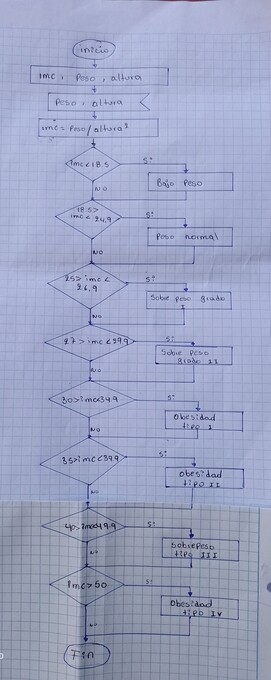 inicio
imc, Peso, altura
Peso, altura
imc = Peso/altura²
imc<18.5
Si
Bajo Peso
NO
18.5>
imc<24.9
Si
Peso normal
NO
25>imc<
26.9
Si
Sobre peso Grado
I
NO
27>imc<29.9
Si
Sobre Peso
Grado II
NO
30>imc<34.9
Si
Obesidad
tipo I
NO
35>imc<39.9
Si
Obesidad
tipo II
NO
40>imc<49.9
Si
Sobrepeso
tipo III
NO
Imc>50
Si
Obesidad
tipo IV
NO
Fin